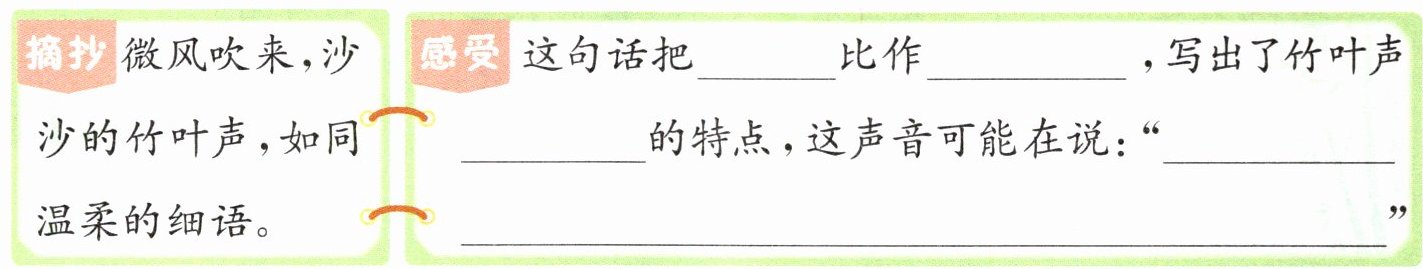 摘抄 微风吹来，沙
沙的竹叶声，如同
温柔的细语。
感受 这句话把______比作________，写出了竹叶声
________的特点，这声音可能在说：“__________
________________________________________”